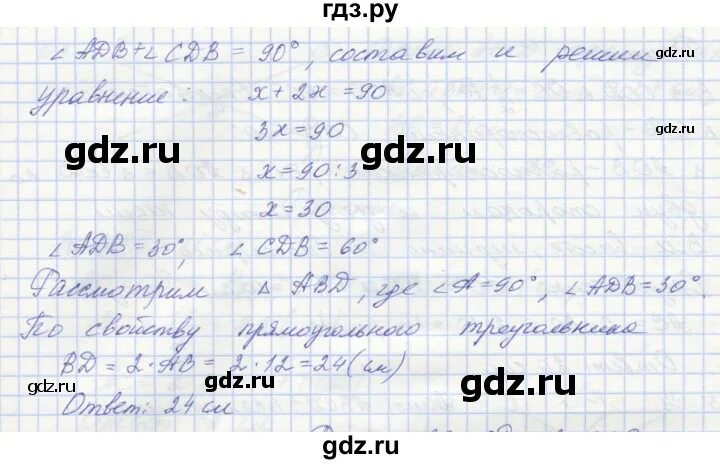 гдз.ру
∠ADB+∠CDB = 90°, составим и решим
gdz.ru
уравнение: x+2x=90
gdz.ru
3x=90
gdz.ru gdz.ru
x=90:3
x=30
∠ADB=30°, ∠CDB=60°
gdz.ru
Рассмотрим △ABD, где ∠A=90°, ∠ADB=30°.
По свойству прямоугольного треугольника
BD=2·AB=2·12=24(см)
gdz.ru gdz.ru gdz.ru
Ответ: 24см
gdz.ru